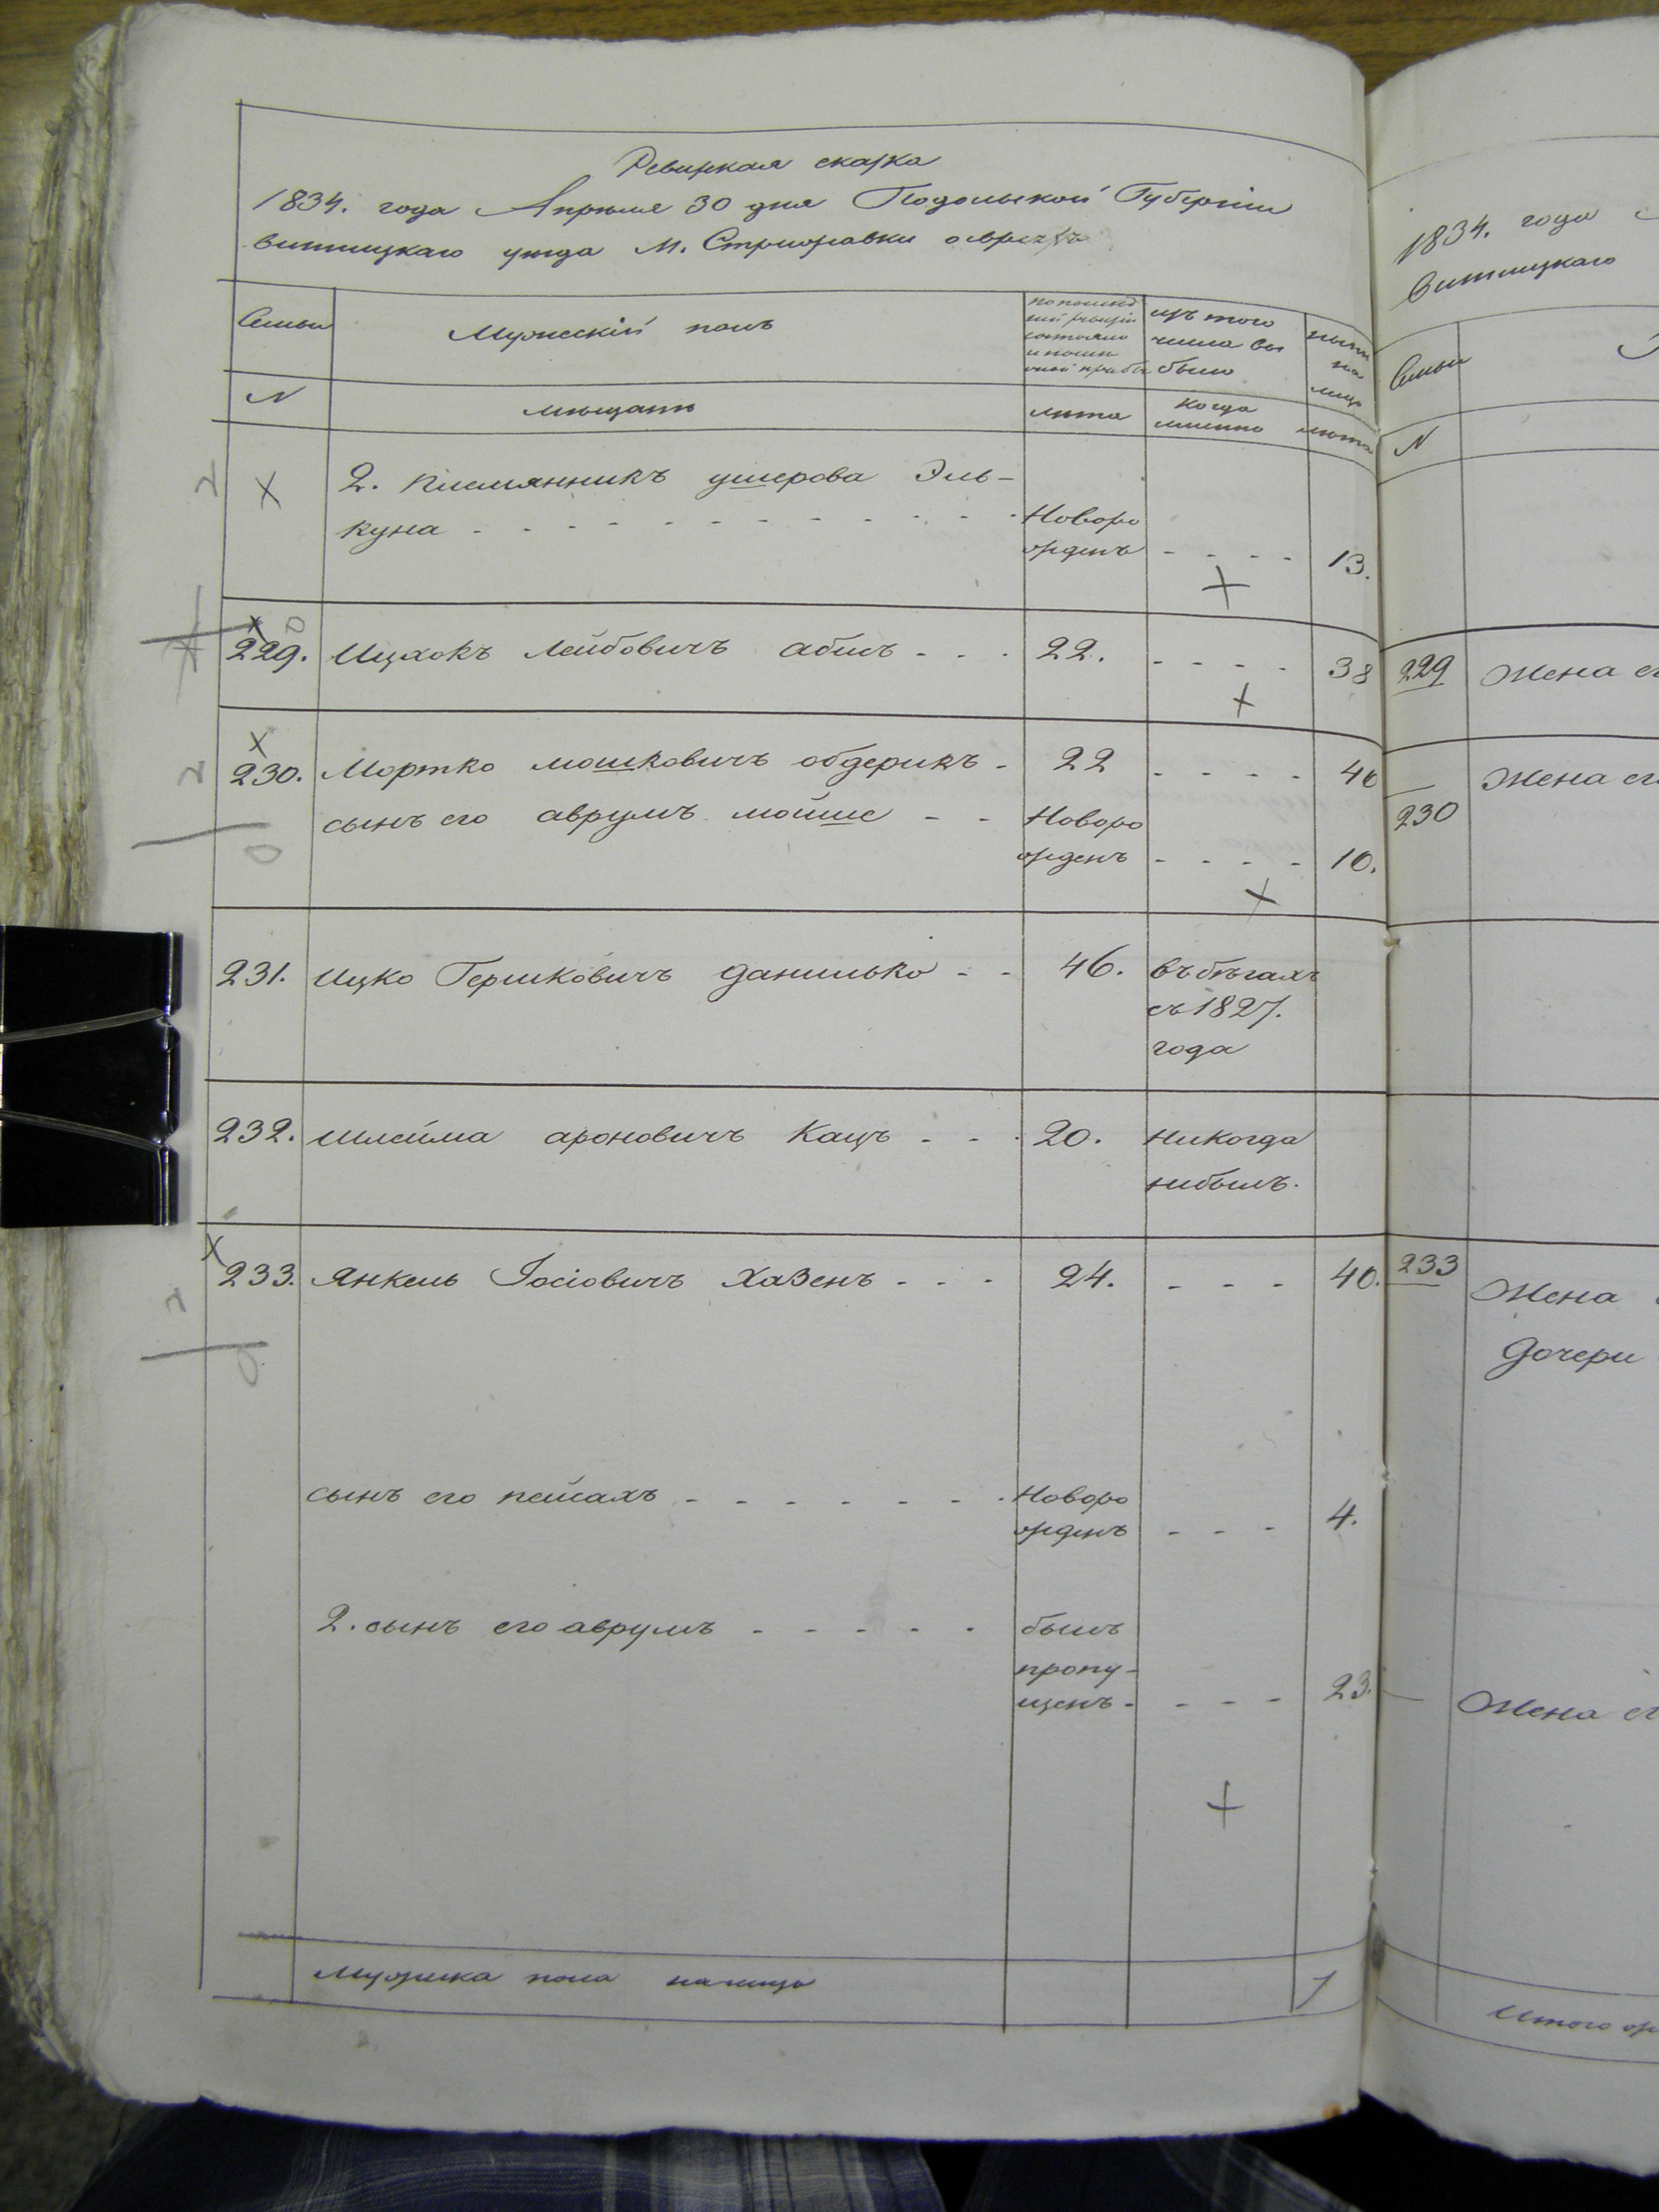 Ревизкая сказка
1834. года Апреля 30 дня Подольской Губерніи
Винницкаго уезда М. Стрижавки о евреяхъ
Семьи
Мужескій полъ
по послѣд
ней ревизіи
состояло
и после
оной прибы
изъ того
числа вы
было
ныне
на
лицо
N
мещане
лета
когда
именно
лета
2. племянникъ ушерова Эль-
куна - - - - - - - - - - Новоро
жденъ - - - - 13.
229. Ицхокъ Лейбовичъ абисъ - - - 22. - - - - 38
230. Мортко мошковичъ обдерикъ - 22 - - - - 40
сынъ его аврумъ мойше - - Новоро
жденъ - - - - 10.
231. Ицко Гершковичъ данилько - - 46. въ бегахъ
съ 1827.
года
232. Шлейма ароновичъ Кацъ - - - 20. никогда
небылъ.
233. Янкель Іосіовичъ Хазенъ - - - 24. - - - 40.
сынъ его пейсахъ - - - - - - - Новоро
жденъ - - - 4.
2. сынъ его аврумъ - - - - - былъ
пропу-
щенъ - - - - 23.
Мужеска пола налицо
1834. года
Винницкаго
Семьи
N
229 Жена ег
Жена ег
230
233
Жена
Дочери
Жена ег
Итого ж